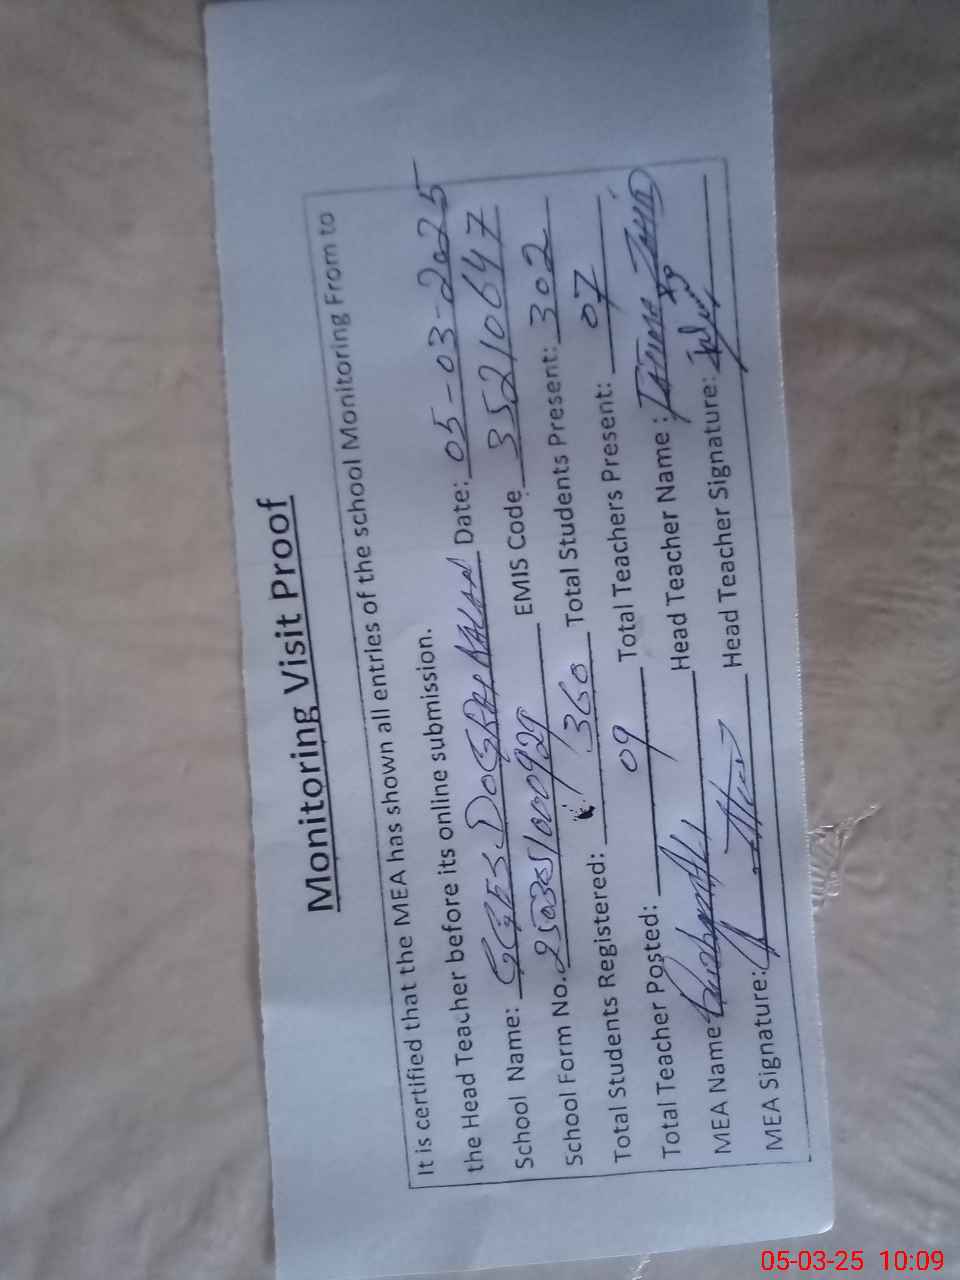 Monitoring Visit Proof
It is certified that the MEA has shown all entries of the school Monitoring From to
the Head Teacher before its online submission.
School Name: GGES DOGRAI KALAN Date: 05-03-2025
School Form No. EMIS Code 35210647
Total Students Registered: 360 Total Students Present: 302
Total Teacher Posted: 09 Total Teachers Present: 07
MEA Name Head Teacher Name :
MEA Signature: Head Teacher Signature:
05-03-25 10:09